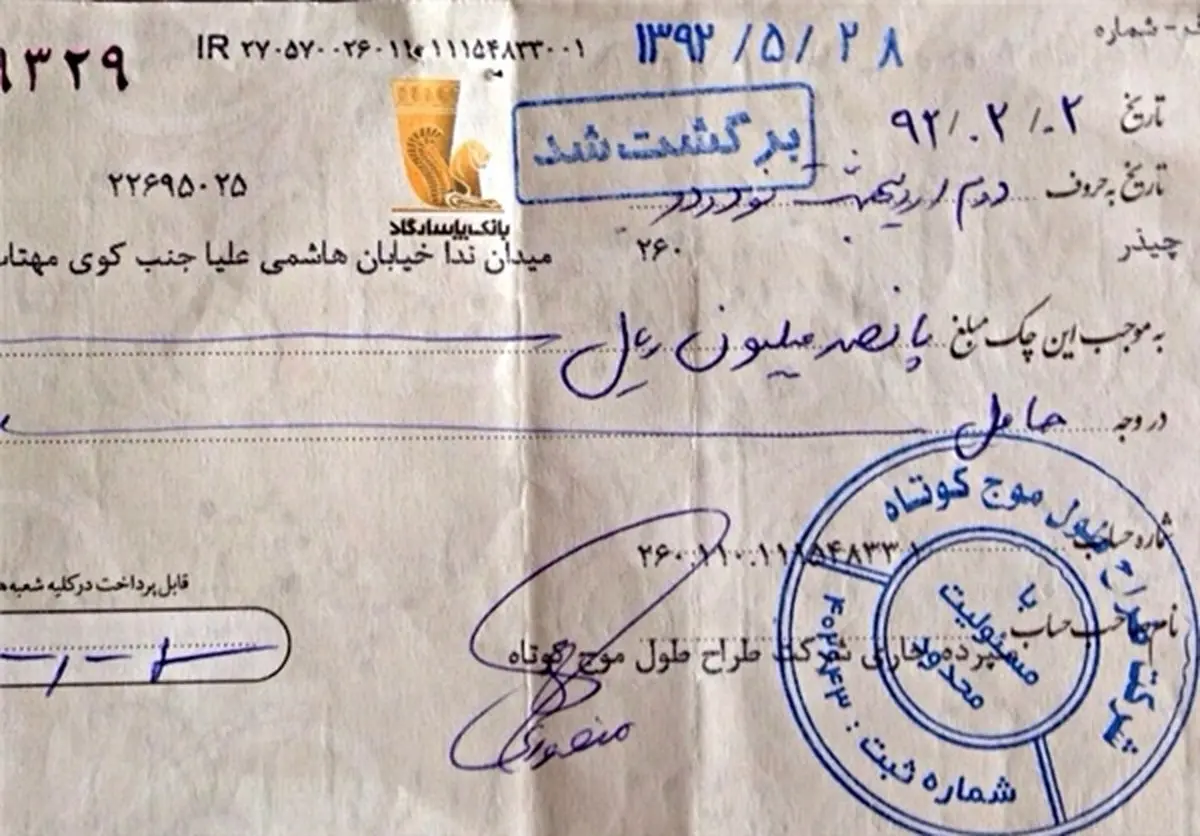 ـ - شماره
۱۳۹۲/۵/۲۸
IR ۲۷۰۵۷۰۰۲۶۰۱۱۰۱۱۱۵۴۸۳۳۰۰۱
۹۳۲۹
تاریخ ۹۲/۰۲/۰۲
برگشت شد
تاریخ به حروف دوم اردیبهشت نود و دو
۲۲۶۹۵۰۲۵
بانک پاسارگاد
چیذر ۲۶۰
میدان ندا خیابان هاشمی علیا جنب کوی مهتاب
به موجب این چک مبلغ پانصد میلیون ریال
در وجه حامل
شماره حساب ۲۶۰.۱۱۰.۱۱۱۵۴۸۳۳.۱
قابل پرداخت در کلیه شعبه ه
نام صاحب حساب
سپرده جاری شرکت طراح طول موج کوتاه
منصوری
شرکت طراح طول موج کوتاه
با
مسئولیت
محدود
شماره ثبت :